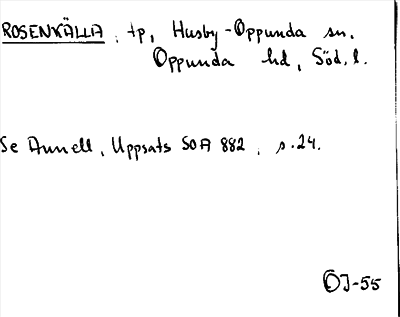 ROSENKÄLLA, tp, Husby-Oppunda sn.
Oppunda hd, Söd. l.
Se Annell, Uppsats SOA 882, s. 24.
ÖJ-55